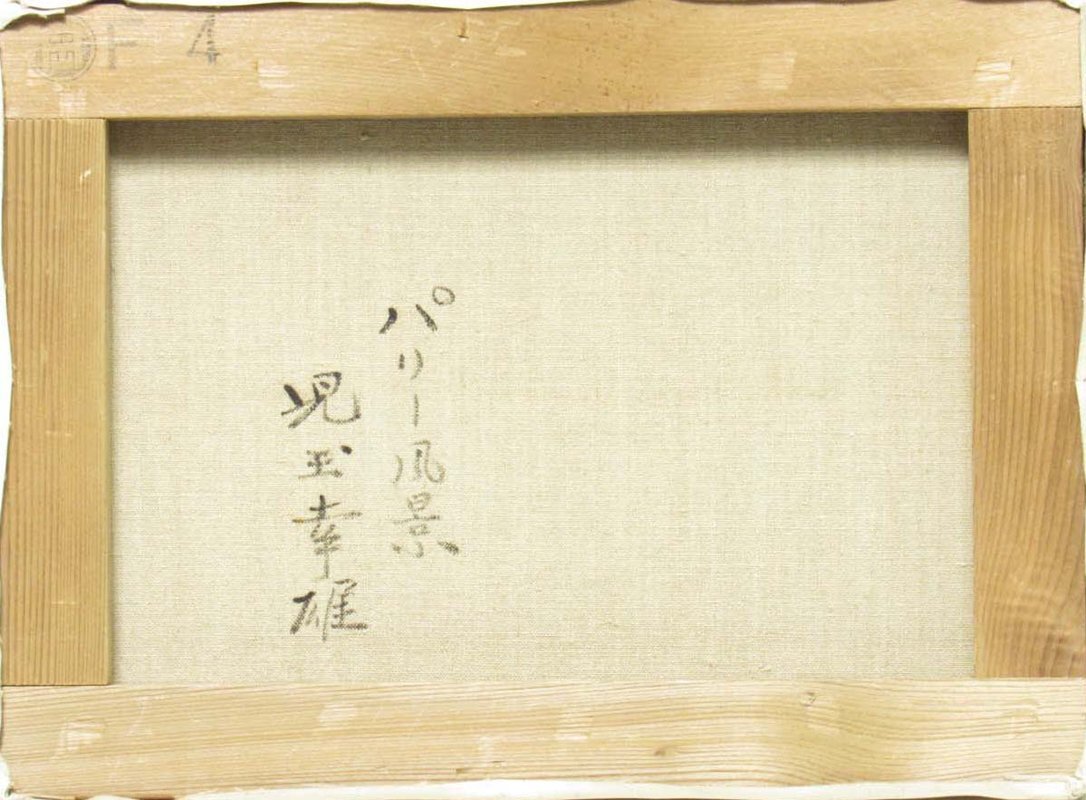 F 4
パリー風景
児玉幸雄